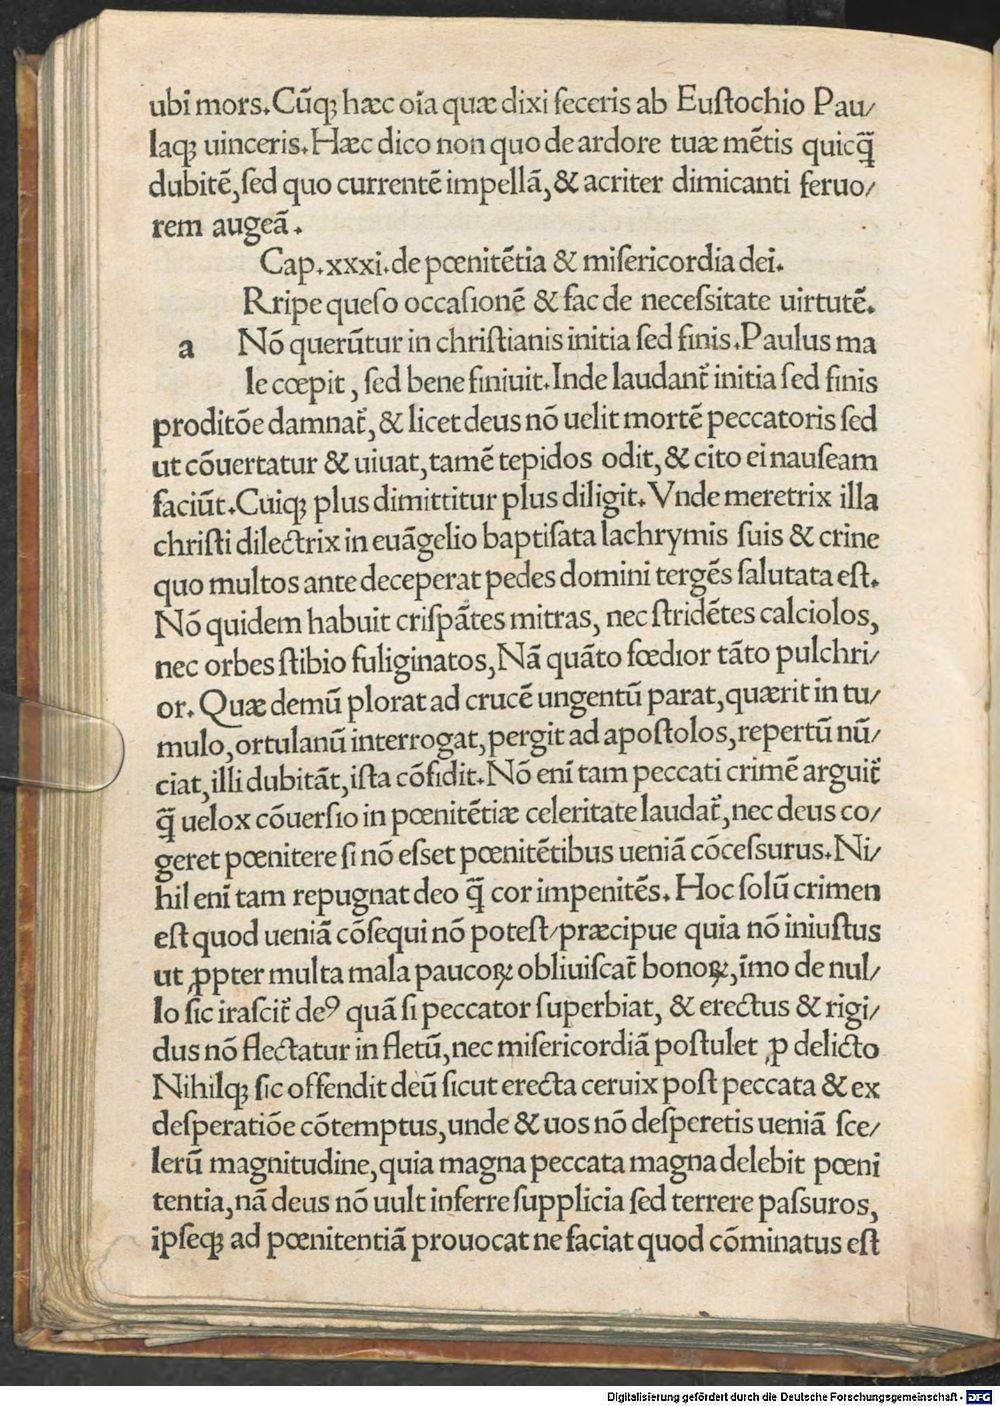 ubi mors.Cūqꝫ hæc oīa quæ dixi feceris ab Eustochio Pau/
laqꝫ uinceris.Hæc dico non quo de ardore tuæ mētis quicq̄
dubitē,ſed quo currentē impellā,& acriter dimicanti feruo/
rem augeā.
Cap.xxxi.de pœnitētia & miſericordia dei.
Rripe queſo occaſionē & fac de neceſsitate uirtutē.
a Nō querūtur in christianis initia ſed finis.Paulus ma
le cœpit, ſed bene finiuit.Inde laudant᷑ initia ſed finis
proditōe damnat᷑,& licet deus nō uelit mortē peccatoris ſed
ut cōuertatur & uiuat,tamē tepidos odit,& cito ei nauſeam
faciūt.Cuiqꝫ plus dimittitur plus diligit.Vnde meretrix illa
christi dilectrix in euāgelio baptiſata lachrymis ſuis & crine
quo multos ante deceperat pedes domini tergēs ſalutata eſt.
Nō quidem habuit criſpātes mitras, nec ſtridētes calciolos,
nec orbes ſtibio fuliginatos,Nā quāto fœdior tāto pulchri/
or.Quæ demū plorat ad crucē ungentū parat,quærit in tu/
mulo,ortulanū interrogat,pergit ad apoſtolos,repertū nū/
ciat,illi dubitāt,iſta cōfidit.Nō enī tam peccati crimē arguit᷑
q̄ uelox cōuerſio in pœnitētiæ celeritate laudat᷑,nec deus co/
geret pœnitere ſi nō eſset pœnitētibus ueniā cōceſsurus.Ni/
hil enī tam repugnat deo q̄ cor impenitēs.Hoc ſolū crimen
eſt quod ueniā cōſequi nō poteſt/præcipue quia nō iniuſtus
ut ꝓpter multa mala paucoꝝ obliuiſcat᷑ bonoꝝ,īmo de nul/
lo ſic iraſcit᷑ deꝰ quā ſi peccator ſuperbiat, & erectus & rigi/
dus nō flectatur in fletū,nec miſericordiā poſtulet ꝓ delicto
Nihilqꝫ ſic offendit deū ſicut erecta ceruix poſt peccata & ex
deſperatiōe cōtemptus,unde & uos nō deſperetis ueniā ſce/
lerū magnitudine,quia magna peccata magna delebit pœni
tentia,nā deus nō uult inferre ſupplicia ſed terrere paſsuros,
ipſeqꝫ ad pœnitentiā prouocat ne faciat quod cōminatus eſt
Digitalisierung gefördert durch die Deutsche Forschungsgemeinschaft - DFG